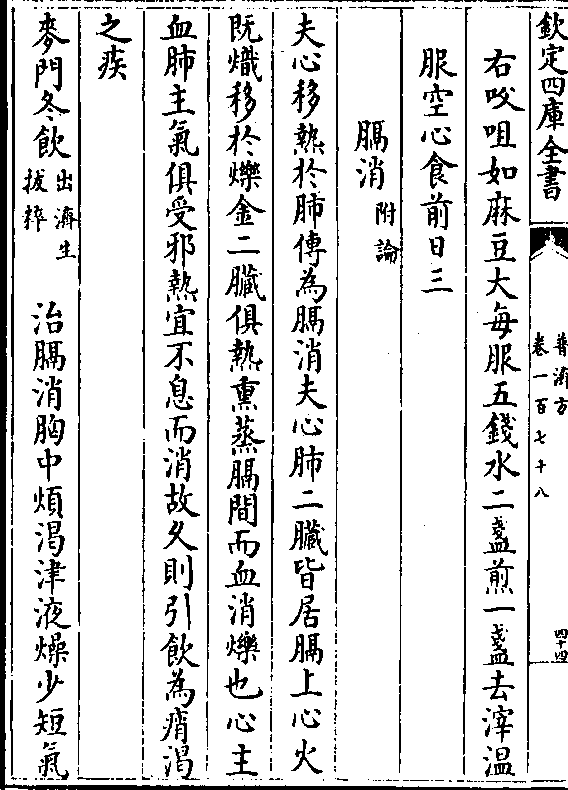 欽定四庫全書
普濟方
卷一百七十八
四十四
右㕮咀如麻豆大每服五錢水二盞煎一盞去滓温
服空心食前日三
膈消附論
夫心移熱於肺傳為膈消夫心肺二臟皆居膈上心火
既熾移於爍金二臟俱熱熏蒸膈間而血消爍也心主
血肺主氣俱受邪熱宜不息而消故久則引飲為痟渴
之疾
麥門冬飲出濟生拔粹 治膈消胸中煩渴津液燥少短氣